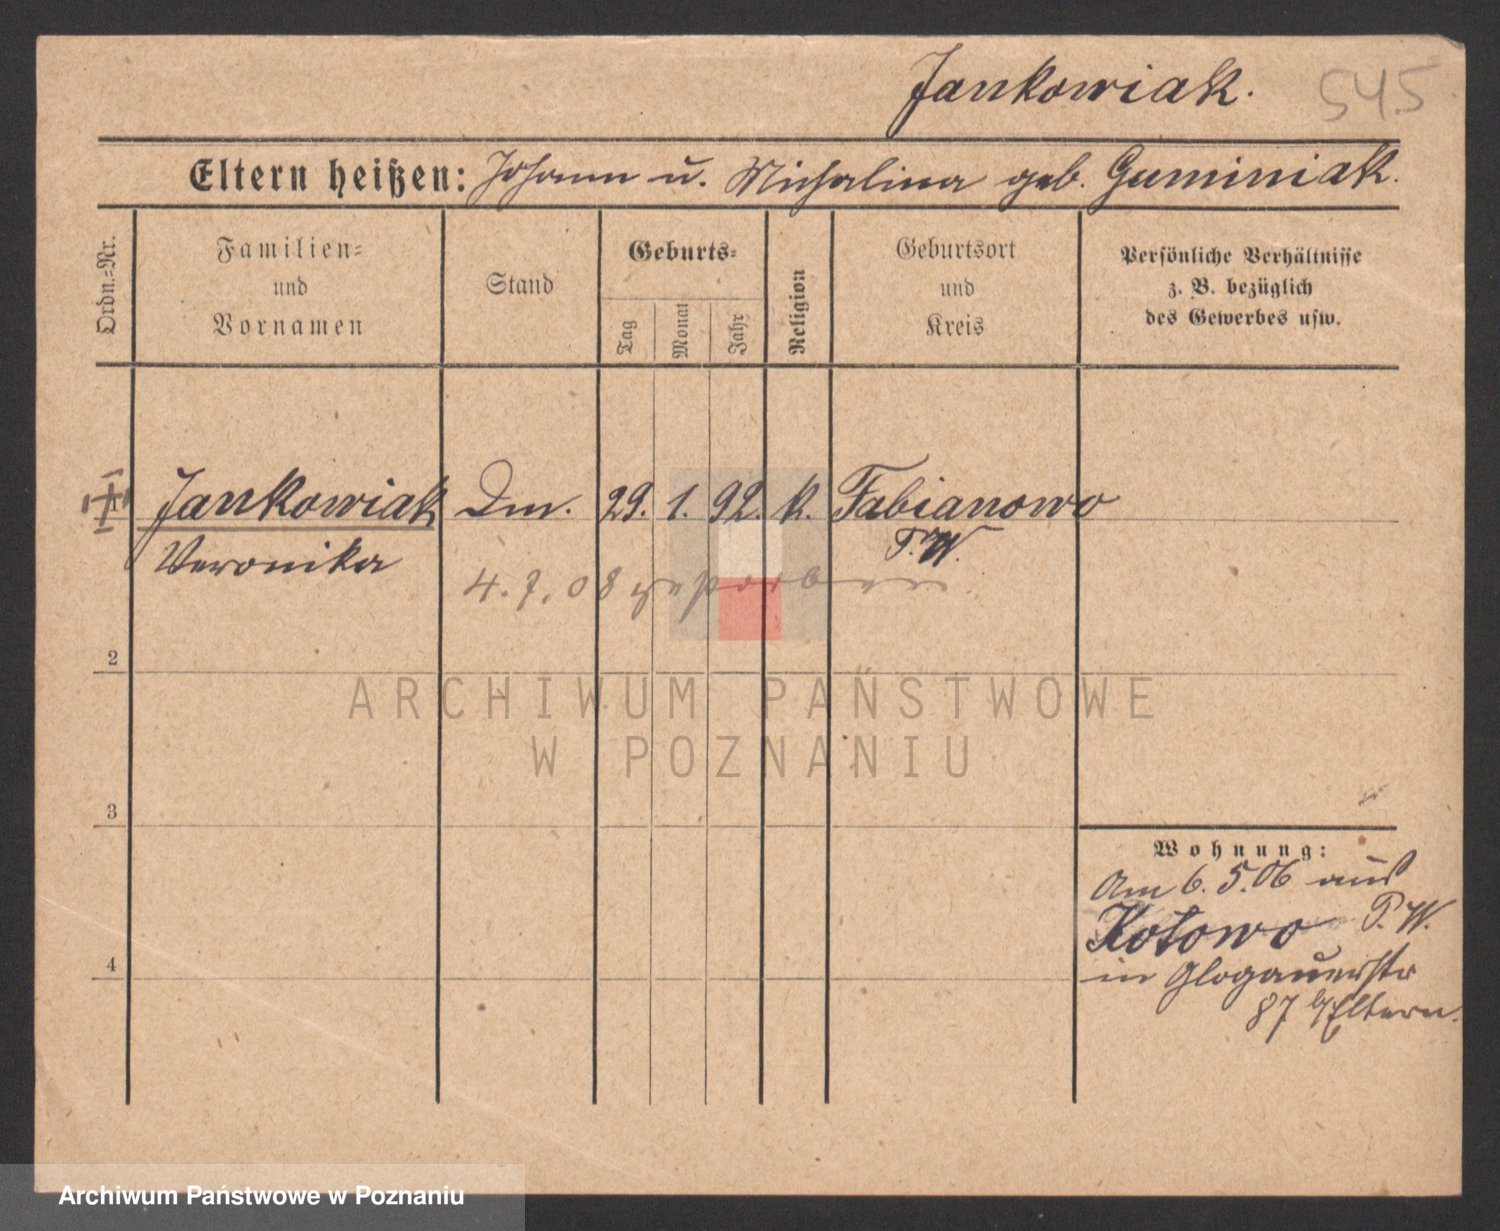 Jankowiak. 545
Eltern heißen: Johann u. Michalina geb. Guminiak.
Ordn.=Nr.
Familien=
und
Vornamen
Stand
Geburts=
Tag
Monat
Jahr
Religion
Geburtsort
und
Kreis
Persönliche Verhältnisse
z. B. bezüglich
des Gewerbes usw.
1 Jankowiak Dm. 29. 1. 92. k. Fabianowo
Veronika P. W.
4. 7. 08 gestorben
2
ARCHIWUM PAŃSTWOWE
W POZNANIU
3
Wohnung:
Am 6. 5. 06 aus
Kotowo P. W.
4
in Glogauerstr
87 b/Eltern.
Archiwum Państwowe w Poznaniu